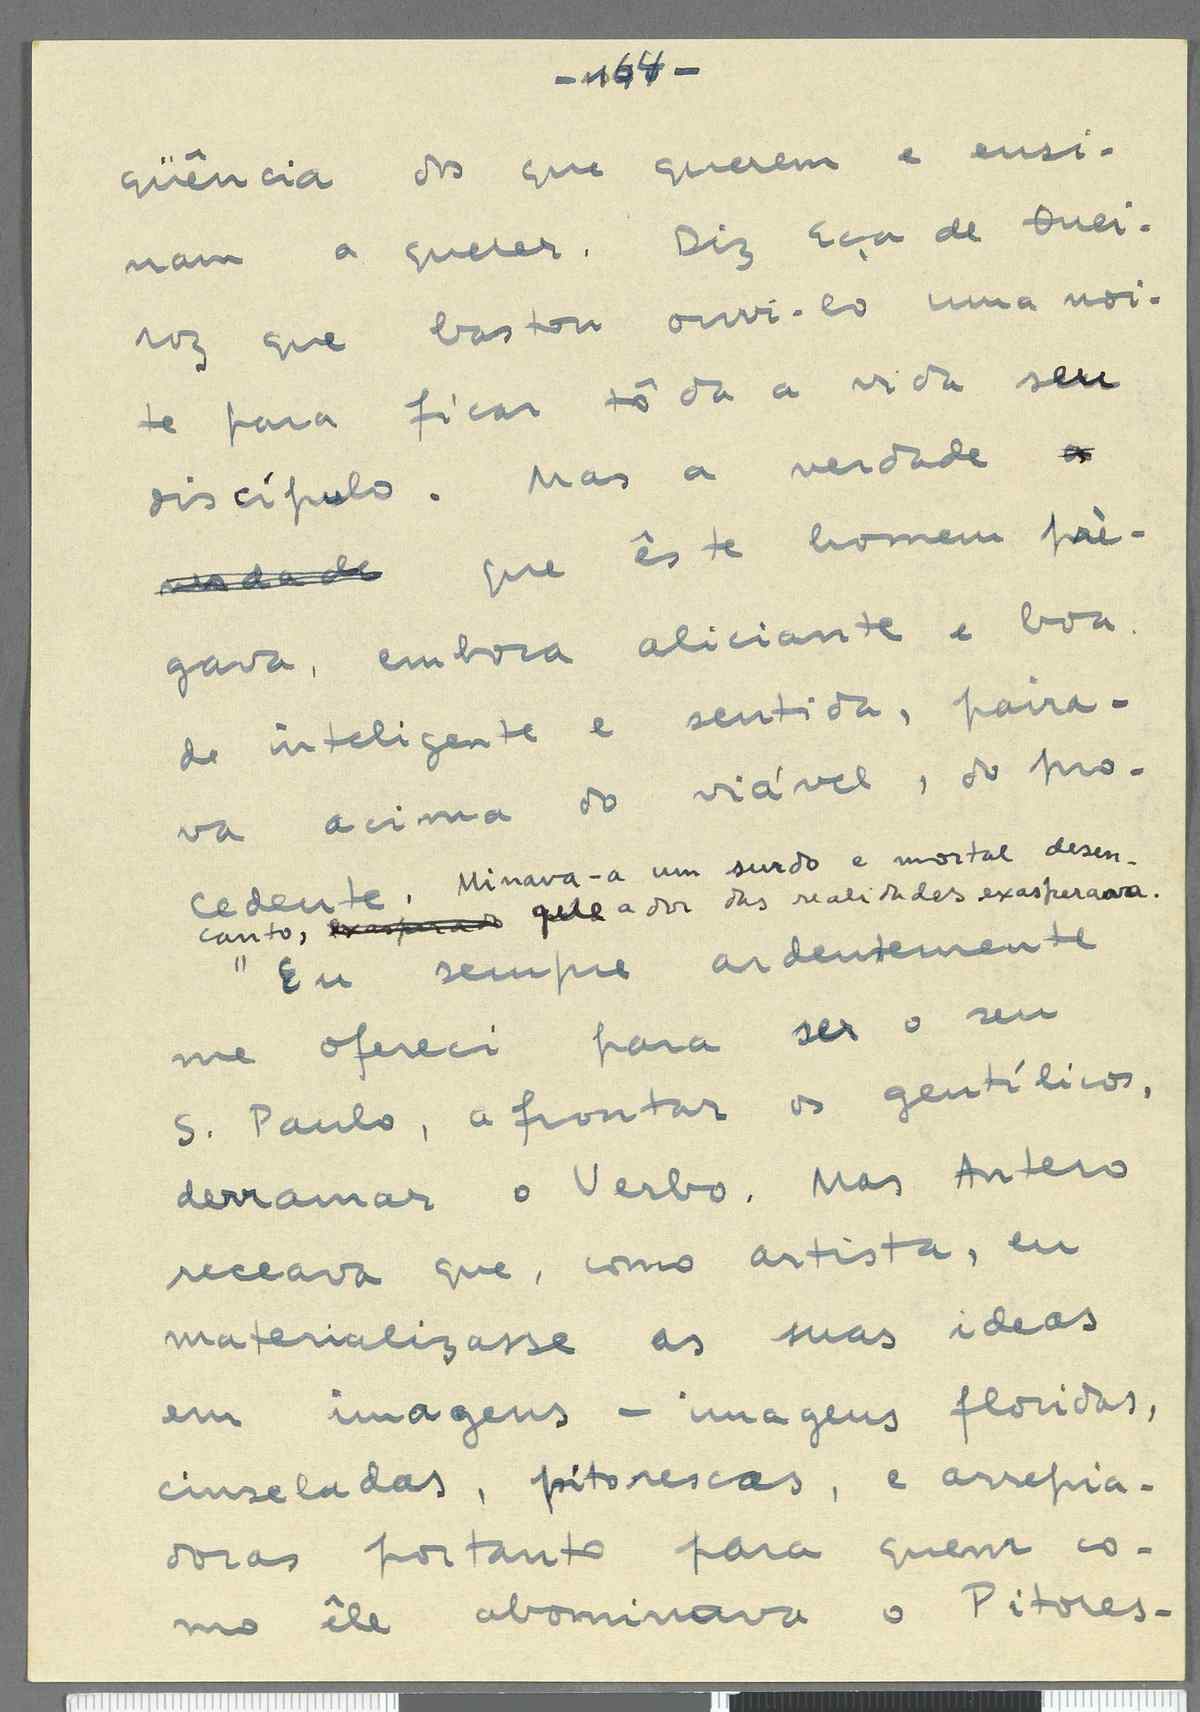 - 164 -
qüência dos que querem e ensi-
nam a querer. Diz Eça de Quei-
roz que bastou ouvi-lo uma noi-
te para ficar tôda a vida seu
discípulo. Mas a verdade a
verdade que êste homem prè-
gava, embora aliciante e boa
de inteligente e sentida, paira-
va acima do viável, do pro-
cedente. Minava-a um surdo e mortal desen-
canto, exasperado que a dor das realidades exasperava.
"Eu sempre ardentemente
me ofereci para ser o seu
S. Paulo, afrontar os gentílicos,
derramar o Verbo. Mas Antero
receava que, como artista, eu
materializasse as suas ideas
em imagens - imagens floridas,
cinzeladas, pitorescas, e arrepia-
doras portanto para quem co-
mo êle abominava o Pitores-